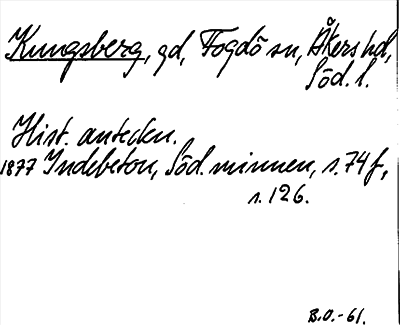 Kungsberg, gd, Fogdö sn, Åkers hd,
Söd. l.
Hist. anteckn.
1877 Indebetou, Söd. minnen, s. 74 f,
s. 126.
B.O.-61.